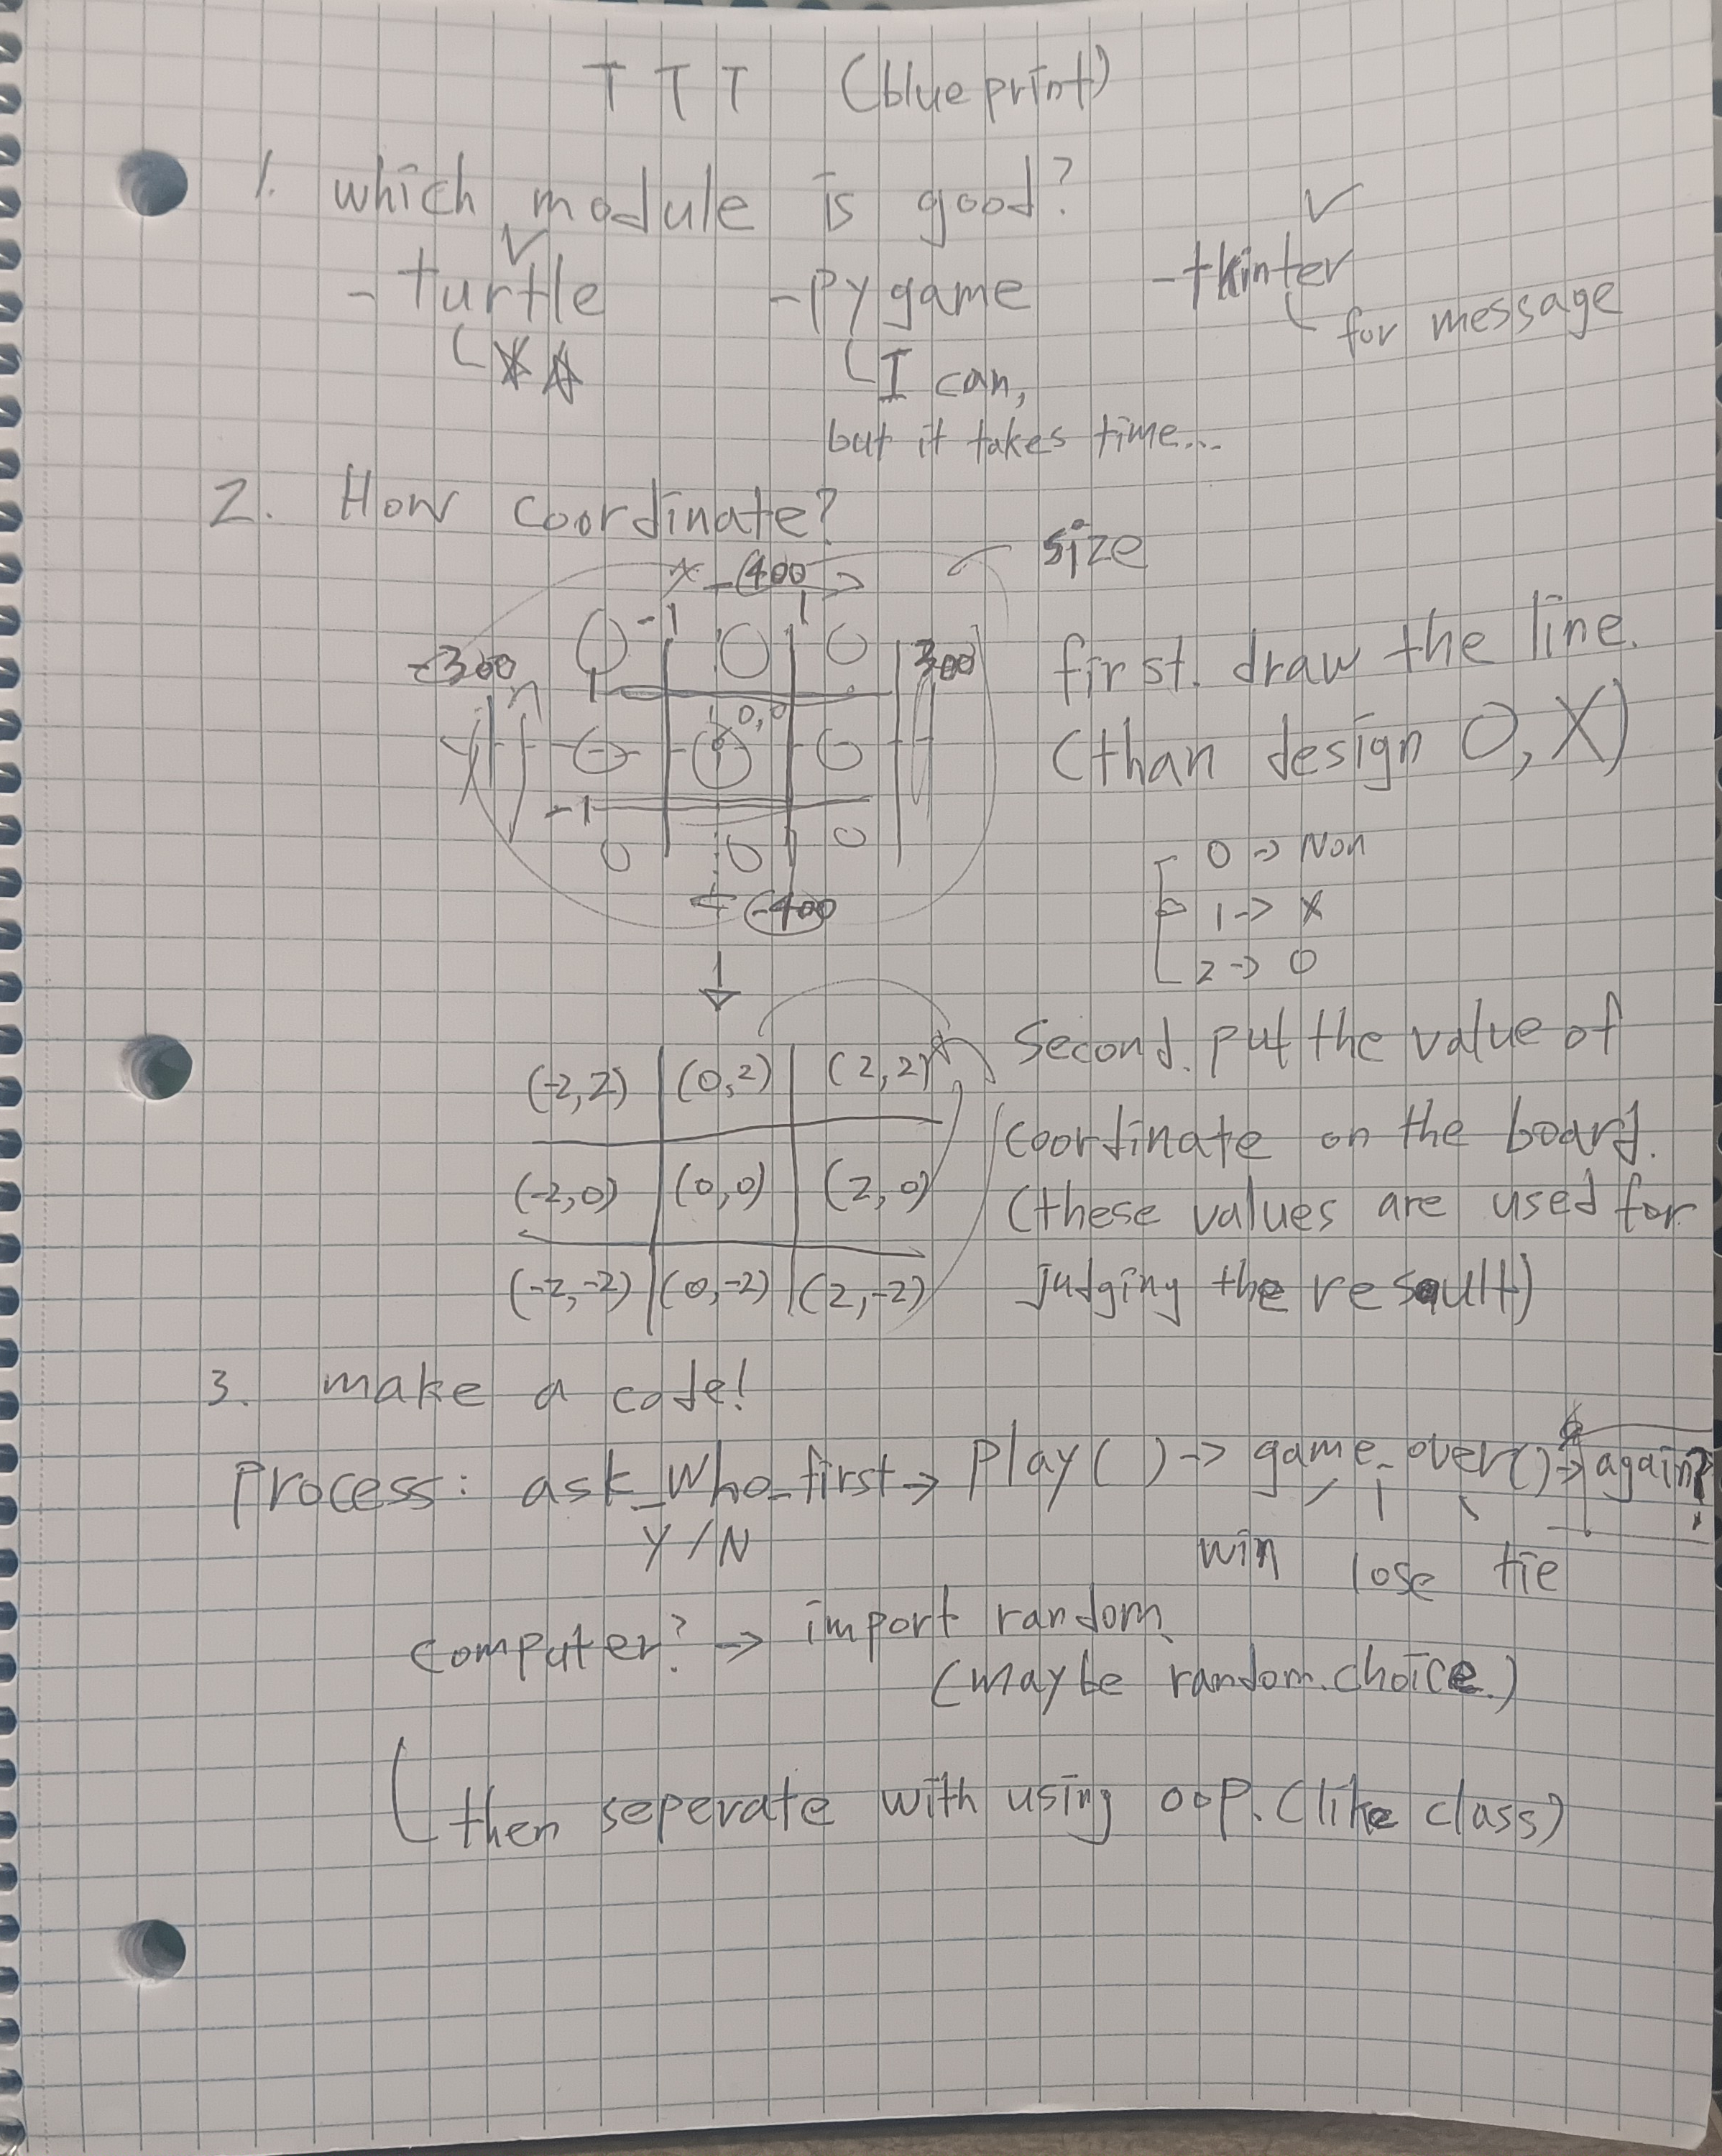 TTT (blueprint)
1. which module is good?
- turtle - pygame - tkinter
for message
I can,
but it takes time...
2. How coordinate?
size
400
-1 1
-300 300
1
0,0
-1
-400
first. draw the line.
(than design O, X)
0 -> Non
1 -> X
2 -> O
(-2,2) (0,2) (2,2)
(-2,0) (0,0) (2,0)
(-2,-2) (0,-2) (2,-2)
Second. put the value of
coordinate on the board.
(these values are used for
judging the result)
3. make a code!
Process: ask_who_first -> Play() -> game_over() -> again?
Y/N
win lose tie
computer? -> import random
(maybe random.choice.)
then seperate with using oop. (like class)